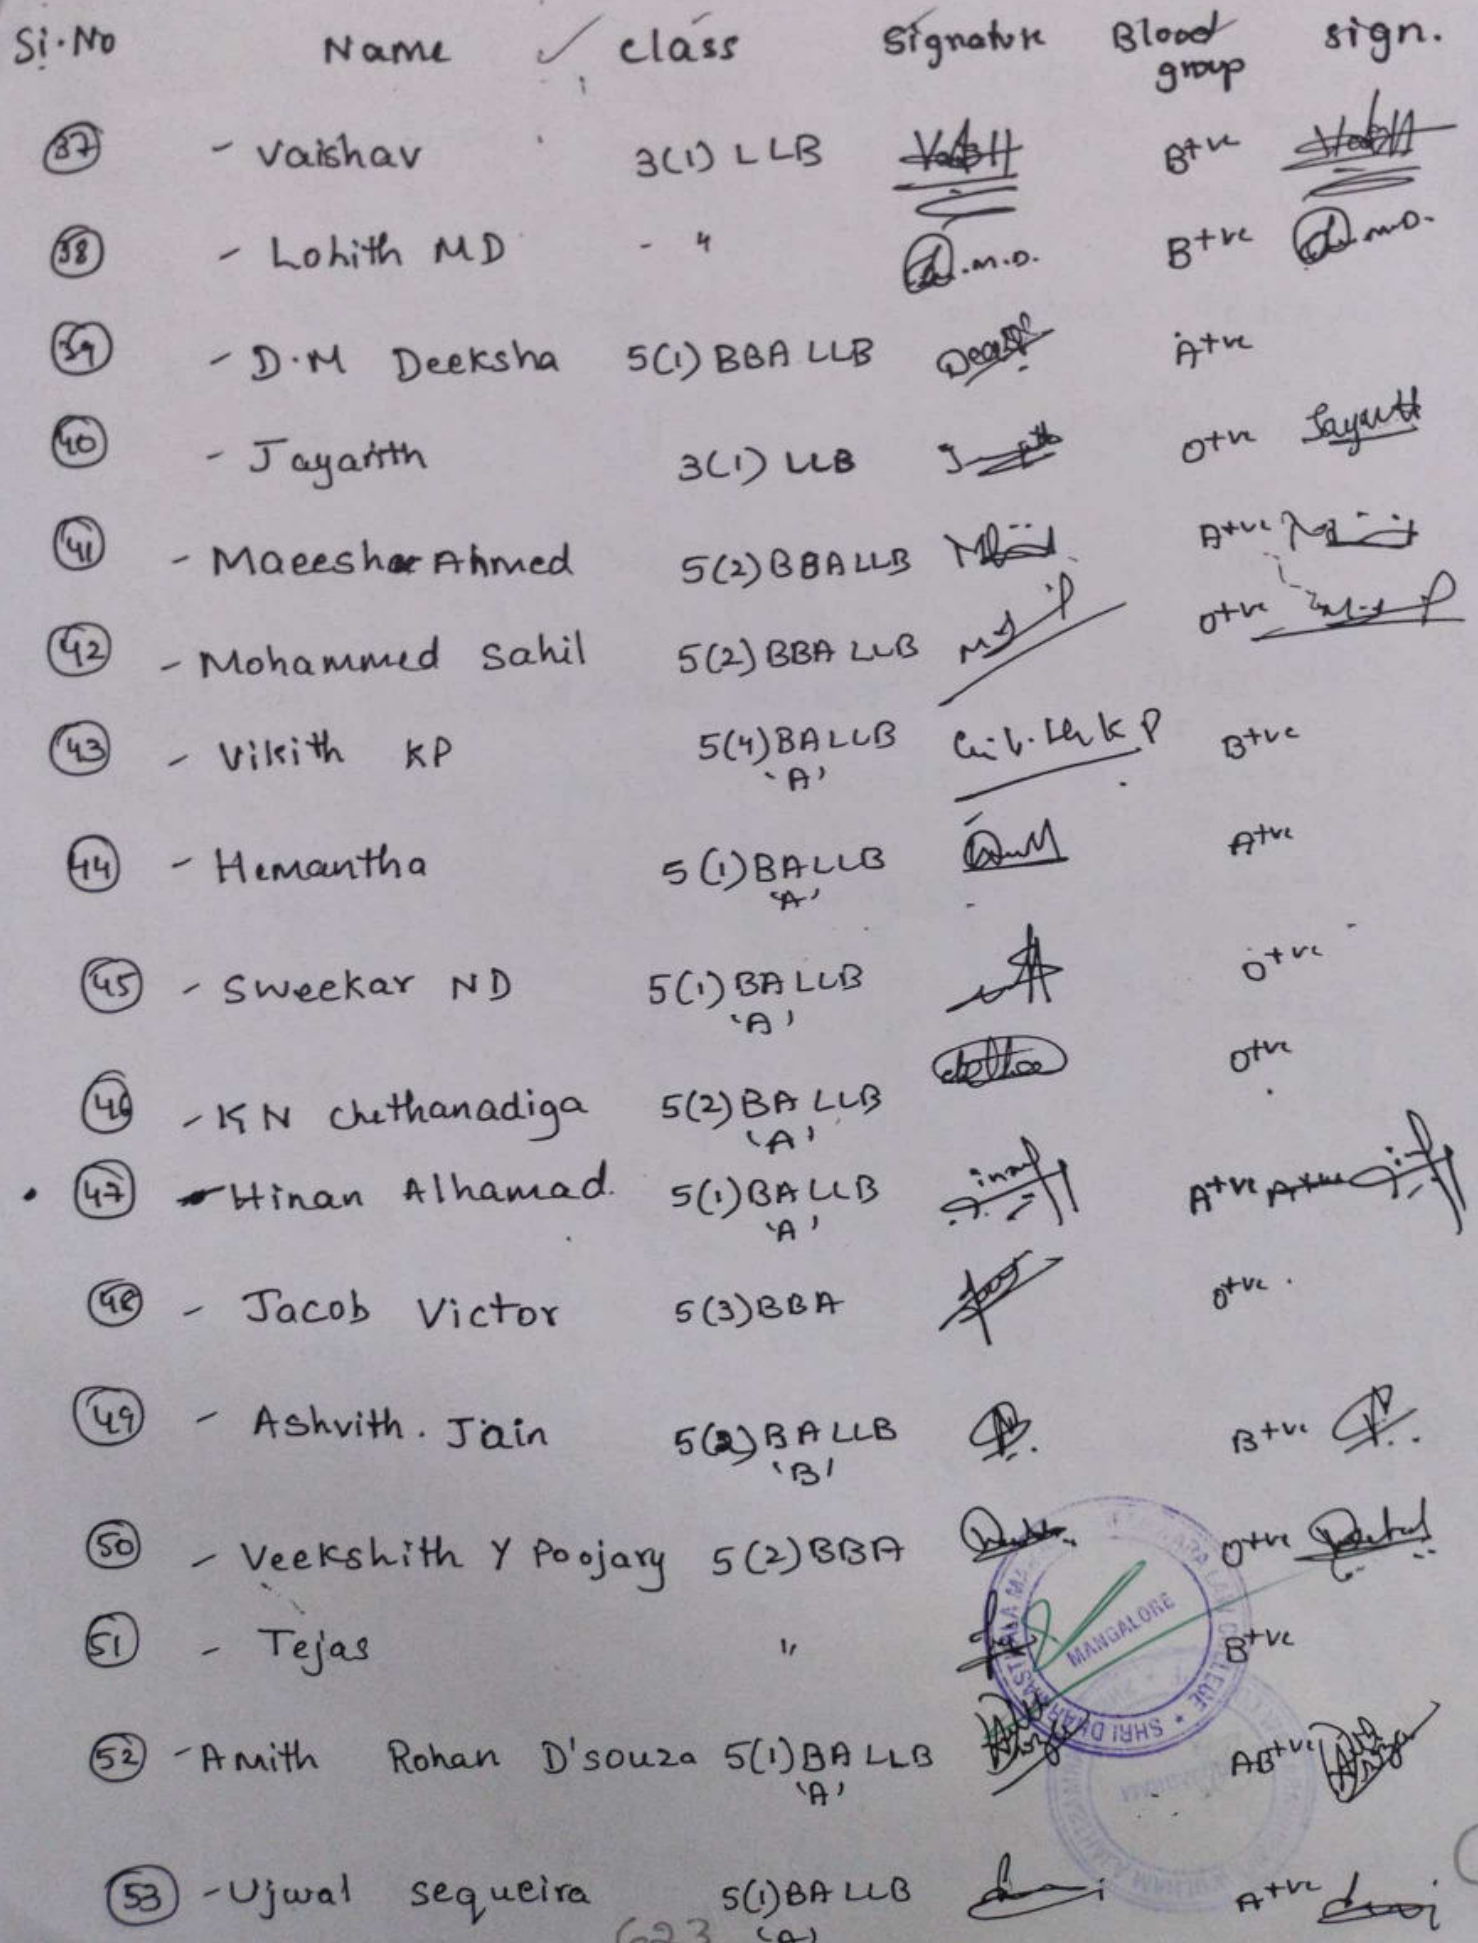 Si.No Name ✓ class Signature Blood group sign.
37 - Vaishav 3(1) LLB B+ve
38 - Lohith MD - " .m.D. B+ve .m.D.
39 - D.M Deeksha 5(1) BBA LLB A+ve
40 - Jayanth 3(1) LLB O+ve Jayanth
41 - Maeesha Ahmed 5(2) BBA LLB A+ve
42 - Mohammed Sahil 5(2) BBA LLB O+ve
43 - Vikith KP 5(4) BA LLB 'A' B+ve
44 - Hemantha 5(1) BA LLB 'A' A+ve
45 - Sweekar ND 5(1) BA LLB 'A' O+ve
46 - KN Chethanadiga 5(2) BA LLB 'A' O+ve
47 - Hinan Alhamad. 5(1) BA LLB 'A' A+ve A+ve
48 - Jacob Victor 5(3) BBA O+ve
49 - Ashvith. Jain 5(2) BA LLB 'B' B+ve
50 - Veekshith Y Poojary 5(2) BBA O+ve
51 - Tejas " B+ve
MANGALORE
52 - Amith Rohan D'souza 5(1) BA LLB 'A' AB+ve
53 - Ujwal sequeira 5(1) BA LLB (A) A+ve
623